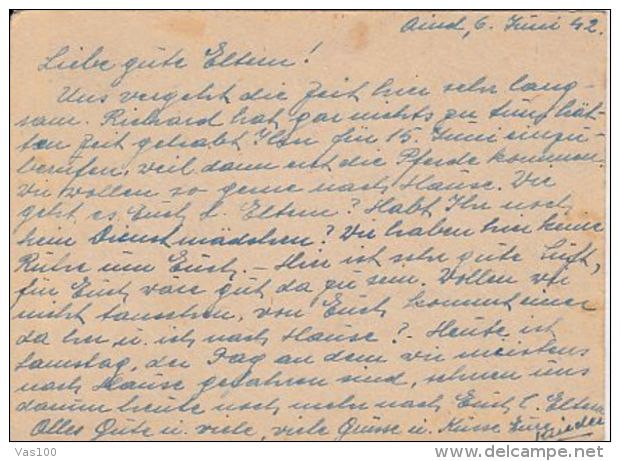 Aiud, 6. Juni 42.
Liebe gute Eltern!
Uns vergeht die Zeit hier sehr lang-
sam. Richard hat gar nichts zu tun, hät-
ten Zeit gehabt Ihn für 15 Juni einzu-
berufen, weil dann erst die Pferde kommen.
Wir wollen so gerne nach Hause. Wie
geht es Euch l. Eltern? Habt Ihr noch
kein Dienstmädchen? Wir haben hier keine
Ruhe um Euch. – Hier ist sehr gute Luft,
für Euch wäre gut da zu sein. Wollen wir
nicht tauschen, von Euch kommt einer
da her u. ich nach Hause? – Heute ist
Samstag, der Tag an dem wir meistens
nach Hause gefahren sind, sehnen uns
darum heute noch mehr nach Euch l. Eltern
Alles Gute u. viele, viele Grüsse u. Küsse Eure
Kinder
Vas100
delcampe.net